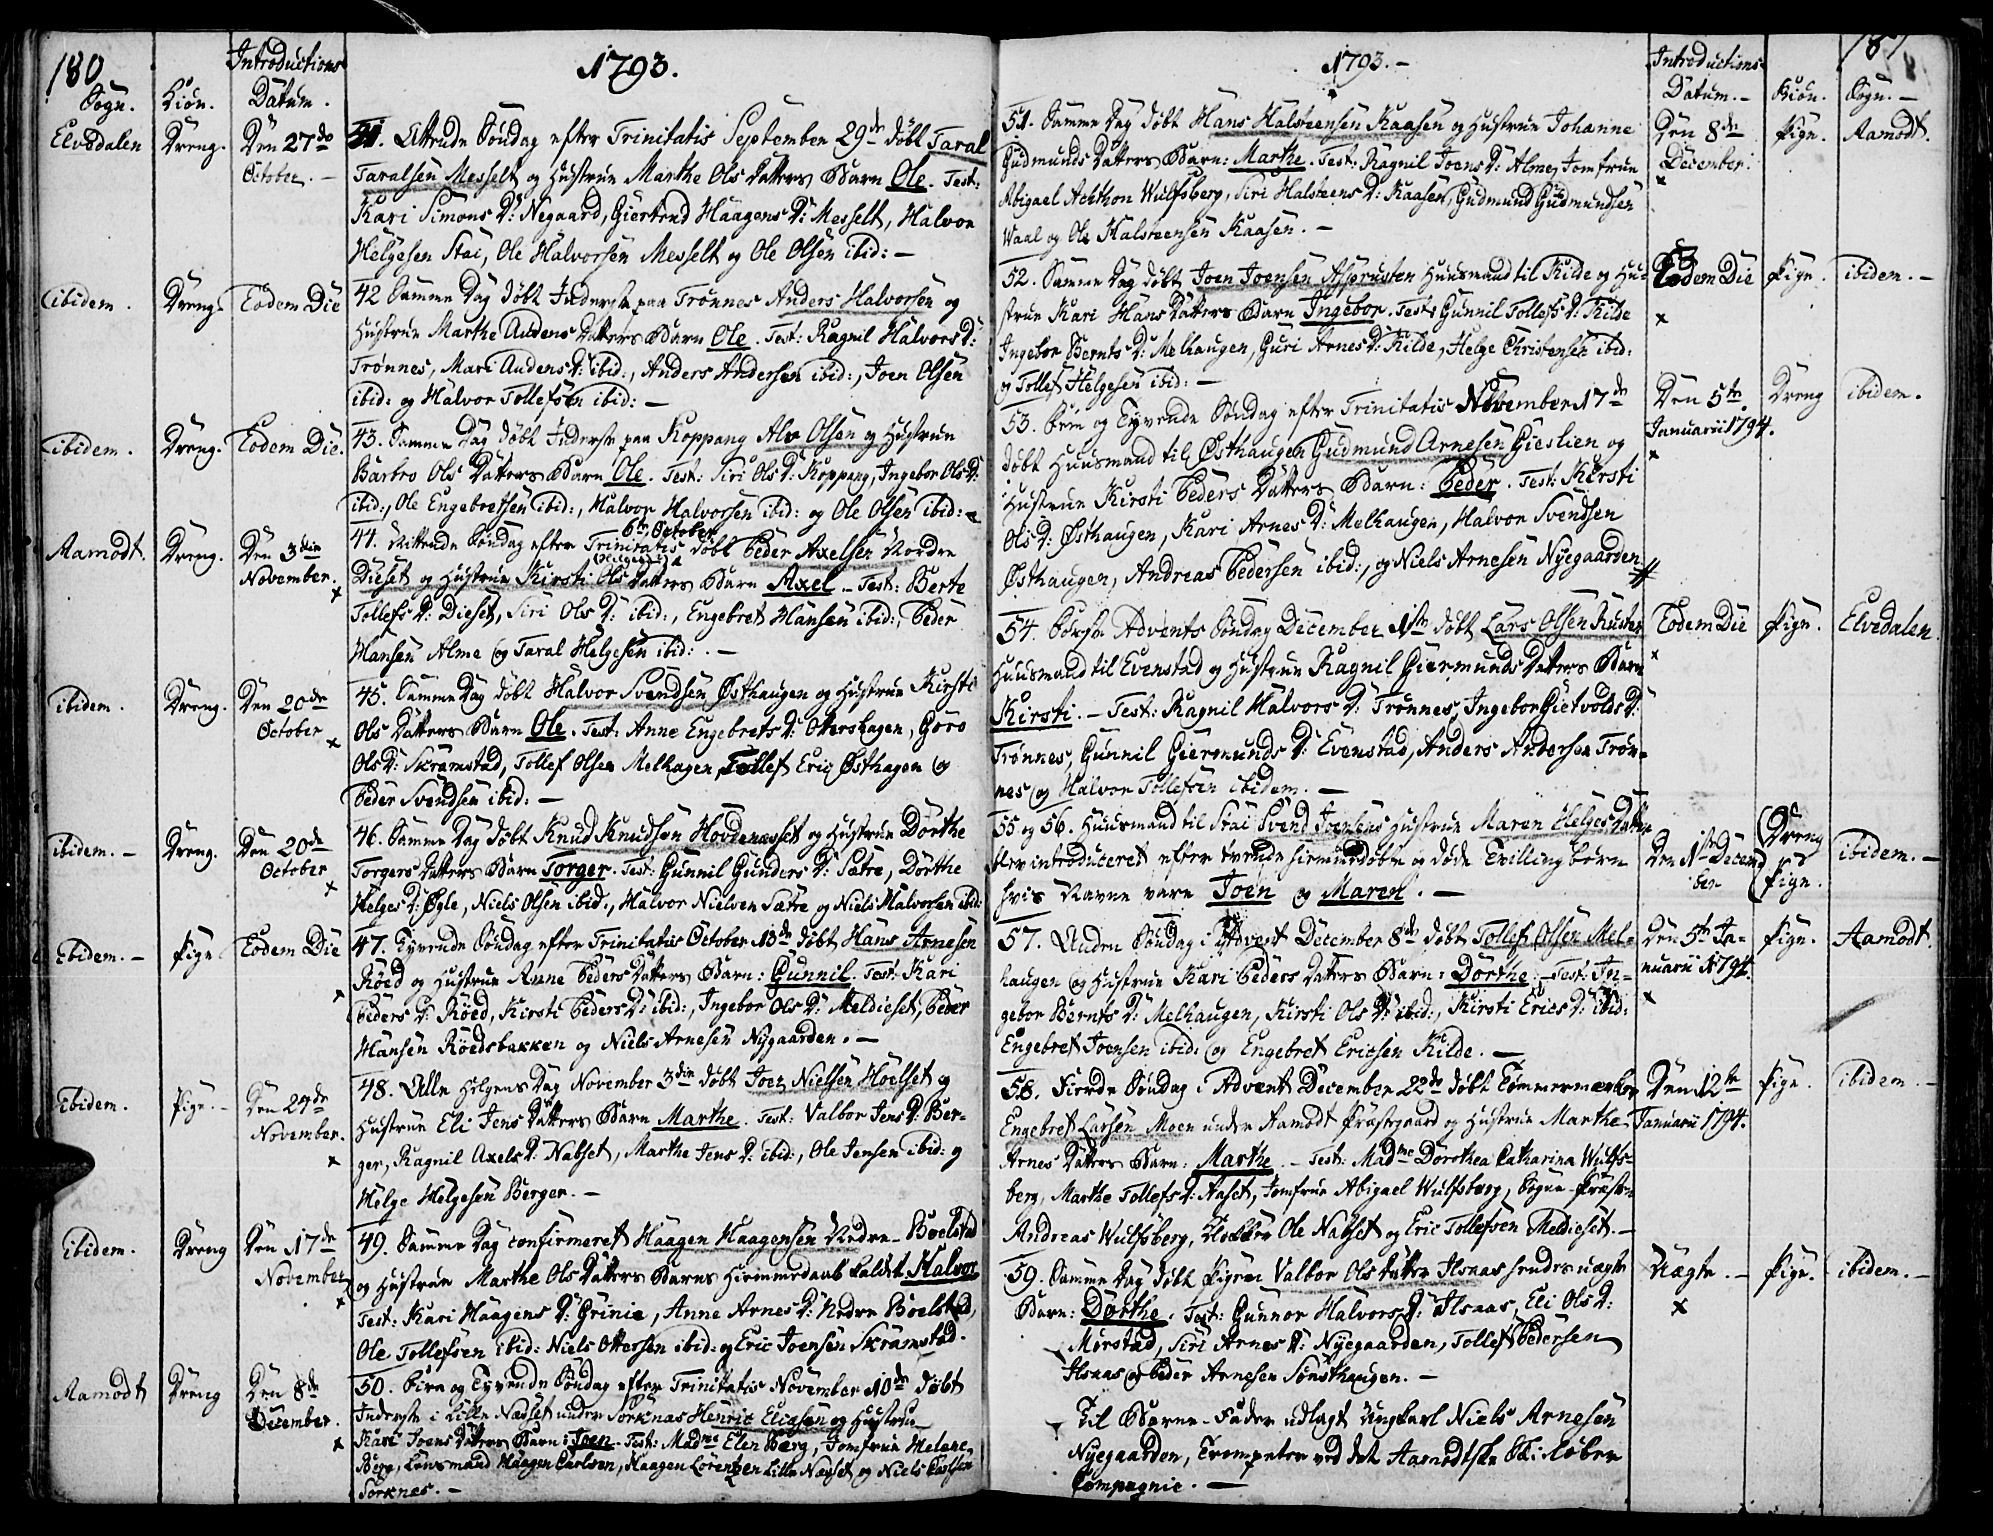 180
Introductions
1793.
Sogn. Kiön. Datum.
Elvedalen Dreng. Den 27de October. —
41. Attende Söndag efter Trinitatis September 29de döbt Taral
Taralsen Messelt og Hustrue Marthe Ols Datters Barn Ole. Test:
Kari Simons D: Negaard, Giertrud Haagens D: Messelt, Halvor
Helgesen Stai, Ole Halvorsen Messelt og Ole Olsen ibid: —
ibidem. Dreng. Eodem Die
42 Samme Dag döbt Inderste paa Trönnes Anders Halvorsen og
Hustrue Marthe Audens Datters Barn Ole. Test: Ragnil Halvors D:
Trönnes, Mari Audens D: ibid:, Anders Andersen ibid:, Joen Olsen
ibid: og Halvor Tollefsen ibid: —
ibidem. Dreng. Eodem Die.
43. Samme Dag döbt Inderste paa Koppang Alv Olsen og Hustrue
Barbro Ols Datters Barn Ole. Test: Siri Ols D: Koppang, Ingebor Ols D:
ibid:, Ole Engebretsen ibid:, Halvor Halvorsen ibid: og Ole Olsen ibid: —
Aamodt. Dreng. Den 3die November. x
6te October
44. Nittende Söndag efter Trinitatis döbt Peder Axelsen Nordre
Dieset og Hustrue Kirsti Ols Datters Barn Axel. — Test: Berte
Tollefs D: Dieset, Siri Ols D: ibid:, Engebret Hansen ibid:, Peder
Hansen Alme og Taral Helgesen ibid: . —
ibidem. Dreng. Den 20de October x
45. Samme Dag döbt Halvor Svendsen Östhaugen og Hustrue Kirsti
Ols Datters Barn Ole. Test: Anne Engebrets D: Ottershagen, Goro
Ols D: Skramstad, Tollef Olsen Melhagen, Tollef Eric Östhagen og
Peder Svendsen ibid: —
ibidem. — Dreng. Den 20de October x
46. Samme Dag döbt Knud Knudsen Hovdenæsset og Hustrue Dorthe
Torgers Datters Barn Torger. Test: Gunnil Gunders D: Sætre, Dorthe
Helges D: Ögle, Niels Olsen ibid:, Halvor Nielsen Sætre og Niels Halvorsen ibid:
Ibidem. — Pige Eodem Die x
47. Tyvende Söndag efter Trinitatis October 13de döbt Hans Arnesen
Röed og Hustrue Anne Peders Datters Barn: Gunnil. Test: Kari
Peders D: Röed, Kirsti Peders D: ibid:, Ingebor Ols D: Meldieset, Peder
Hansen Röedsbakken og Niels Arnesen Nygaarden. —
Ibidem. Pige. — Den 24de November. x
48. Alle Helgens Dag November 3die döbt Joen Nielsen Hoelset og
Hustrue Eli Jens Datters Barn Marthe. Test: Valbor Jens D: Ber-
ger, Ragnil Axels D: Nabset, Marthe Jens D: ibid:, Ole Jensen ibid: og
Helge Helgesen Berger. —
ibidem. Dreng Den 17de November x
49. Samme Dag confirmeret Haagen Haagensen Nedre Boelstad
og Hustrue Marthe Ols Datters Barns Hiemmedaab kaldet Halvor
Test: Kari Haagens D: Grinie, Anne Arnes D: Nedre Boelstad,
Ole Tollefsen ibid: Niels Ottersen ibid: og Eric Joensen Skramstad.
Aamodt Dreng Den 8de December. x
50. Fire og Tyvende Söndag efter Trinitatis November 10de döbt
Inderste i Lille Næsset under Sorknæs Henric Ericsen og Hustrue
Kari Joens Datters Barn: Joen. Test: Madme Elen Berg, Jomfrue Helene
Berg, Lensmand Haagen Carlsen, Haagen Lorentzen Lille Næsset, og Niels Carlsen
Sorknes. —
181
1793. —
Introductions
Datum. — Kiön. Sogn. —
51. Samme Dag döbt Hans Halsteensen Kaasen og Hustrue Johanne
Gudmunds Datters Barn: Marthe. Test: Ragnil Joens D: Alme, Jomfrue
Abigael Achthon Wulfsberg, Siri Halsteens D: Kaasen, Gudmund Gudmundsen
Waal og Ole Halsteensen Kaasen. —
Den 8de December. x Pige. Aamodt.
52. Samme Dag döbt Joen Joensen Asprusten Huusmand til Kilde og Hu-
strue Kari Hans Datters Barn Ingebor. Test: Gunnil Tollefs D: Kilde
Ingebor Bernts D: Melhaugen, Guri Arnes D: Kilde, Helge Christensen ibid:
og Tollef Helgesen ibid: —
Eodem Die x Pige. ibidem. —
53. Fem og Tyvende Söndag efter Trinitatis November 17de
döbt Huusmand til Östhaugen Gudmund Arnesen Gieslien og
Hustrue Kirsti Peders Datters Barn: Peder. Test: Kirsti
Ols D: Östhaugen, Kari Arnes D: Melhaugen, Halvor Svendsen
Östhaugen, Andreas Pedersen ibid:, og Niels Arnesen Nyegaarden
Den 5te Januarii 1794. x Dreng ibidem.
54. Förste Advents Söndag December 1ste döbt Lars Olsen Rusten
Huusmand til Evenstad og Hustrue Ragnil Giermunds Datters Barn
Kirsti. — Test: Ragnil Halvors D: Trönnes, Ingebor Gietvolds D:
Trönnes, Gunnil Giermunds D: Evenstad, Anders Andersen Trön-
nes og Halvor Tollefsen ibidem. —
Eodem Die x Pige. Elvedalen.
55 og 56. Huusmand til Stai Svend Joensens Hustrue Maren Helges Datter
blev introduceret efter tvende hiemmedöbte og döde Tvilling börn
hvis Navne vare Joen og Maren. —
Den 1ste Decem- ber Dreng Pige. ibidem. —
57. Anden Söndag i Advent December 8de döbt Tollef Olsen Mel-
haugen og Hustrue Kari Peders Datters Barn: Dorthe. — Test: In-
gebor Bernts D: Melhaugen, Kirsti Ols D: ibid:, Kirsti Erics D: ibid:
Engebret Joensen ibid: og Engebret Ericsen Kilde. —
Den 5te Ja- nuarii 1794. x Pige. Aamodt.
58. Fierde Söndag i Advent December 22de döbt Tömmermerker
Engebret Larsen Moen under Aamodt Præstegaard og Hustrue Marthe
Arnes Datters Barn: Marthe. — Test: Madme Dorothea Catharina Wulfs-
berg, Marthe Tollefs D: Aaset, Jomfrue Abigael Wulfsberg, Sogne-Præst
Andreas Wulfsberg, Klokker Ole Nabset og Eric Tollefsen Meldieset. —
Den 12te Januarii 1794. Pige. ibidem. —
59. Samme Dag döbt Pigen Valbor Ols Datter Ilsaas hendes uægte
Barn: Dorthe. Test: Gunnor Halvors D: Ilsaas, Eli Ols D:
Morstad, Siri Arnes D: Nyegaarden, Tollef Pedersen
Ilsaas og Peder Arnesen Sönsthaugen. —
Uægte. — x Pige. ibidem. —
Til Barne-Fader udlagt Ungkarl Niels Arnesen
Nyegaarden, Trompeter ved det Aamodtske Ski-Löber
Compagnie. —